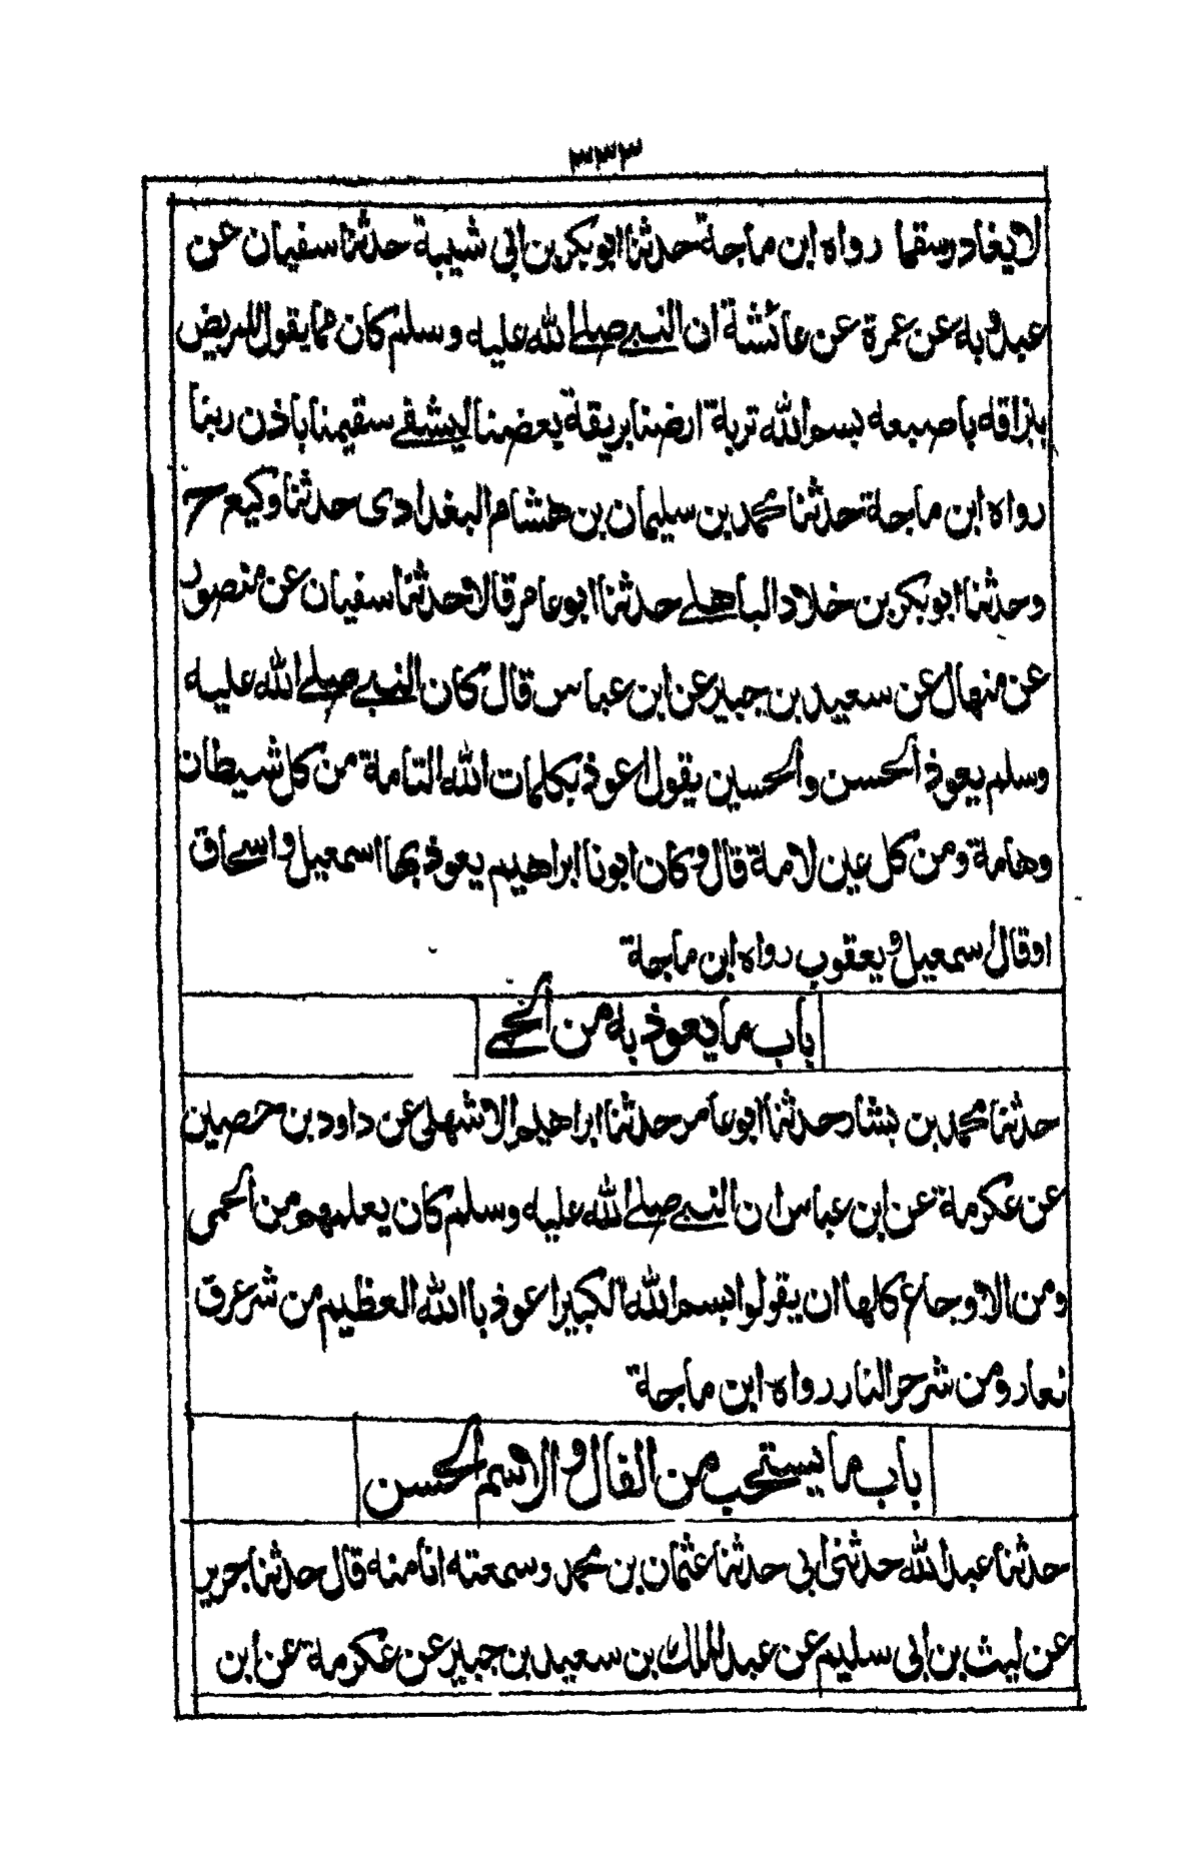 ٣٣٣
لا يغادر سقما رواه ابن ماجة حدثنا ابو بكر بن ابي شيبة حدثنا سفيان عن
عبد ربه عن عمرة عن عائشة ان النبي صلے الله عليه وسلم كان مما يقول للمريض
ببزاقه باصبعه بسم الله تربة ارضنا بريقة بعضنا ليشفے سقيمنا باذن ربنا
رواه ابن ماجة حدثنا محمد بن سليمان بن هشام البغدادى حدثنا وكيع ح
وحدثنا ابو بكر بن خلاد الباهلے حدثنا ابو عامر قالا حدثنا سفيان عن منصور
عن منهال عن سعيد بن جبير عن ابن عباس قال كان النبي صلے الله عليه
وسلم يعوذ الحسن والحسين يقول اعوذ بكلمات الله التامة من كل شيطان
وهامة ومن كل عين لامة قال وكان ابونا ابراهيم يعوذ بها اسمعيل واسحاق
او قال اسمعيل ويعقوب رواه ابن ماجة
باب ما يعوذ به من الحمے
حدثنا محمد بن بشار حدثنا ابو عامر حدثنا ابراهيم الاشهلي عن داود بن حصين
عن عكرمة عن ابن عباس ان النبي صلے الله عليه وسلم كان يعلمهم من الحمى
ومن الاوجاع كلها ان يقولوا بسم الله الكبير اعوذ باالله العظيم من شر عرق
نعار ومن شر حر النار رواه ابن ماجة
باب ما يستحب من الفال والاسم الحسن
حدثنا عبد الله حدثنى ابي حدثنا عثمان بن محمد وسمعته انا منه قال حدثنا جرير
عن ليث بن ابي سليم عن عبد الملك بن سعيد بن جبير عن عكرمة عن ابن